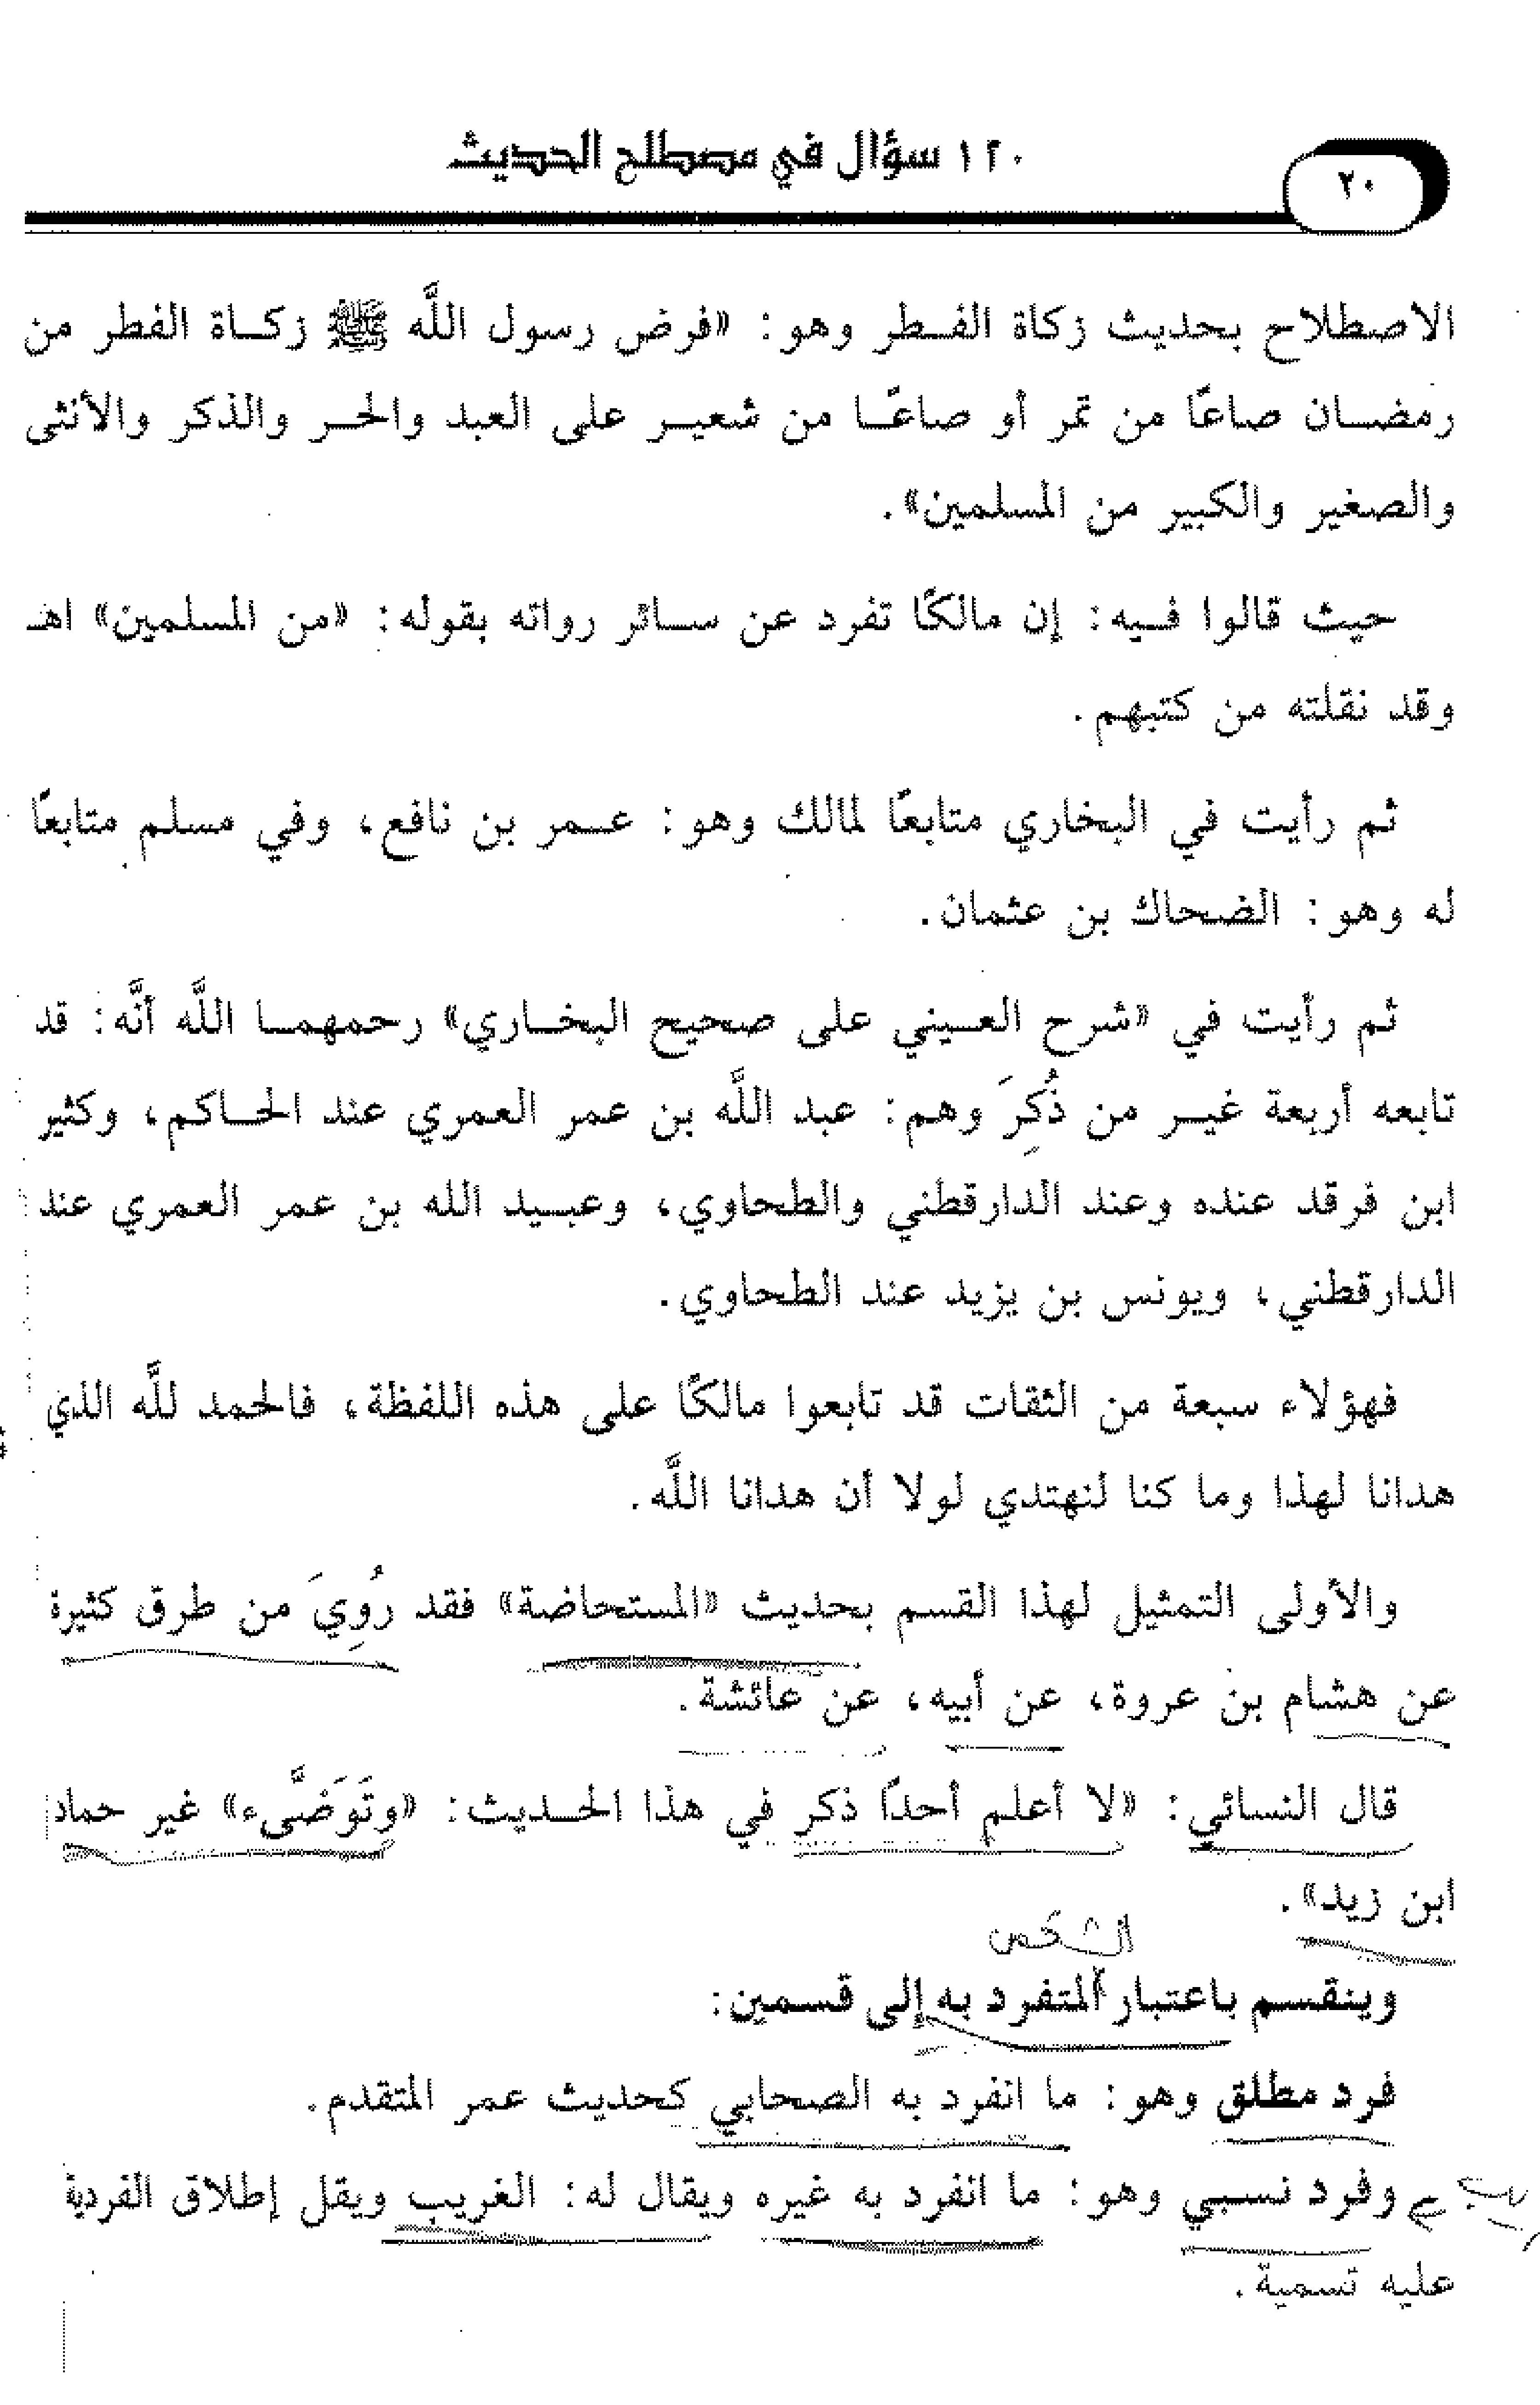 ١٢٠ سؤال في مصطلح الحديث
٢٠
الاصطلاح بحديث زكاة الفـطر وهو: «فرض رسول اللَّه ﷺ زكـاة الفطر من
رمضـان صاعًا من تمر أو صاعًـا من شعيـر على العبد والحـر والذكر والأنثى
والصغير والكبير من المسلمين».
حيث قالوا فـيه: إن مالكًا تفرد عن سـائر رواته بقوله: «من المسلمين» اهـ
وقد نقلته من كتبهم.
ثم رأيت في البخاري متابعًا لمالك وهو: عـمر بن نافع، وفي مسلم متابعًا
له وهو: الضحاك بن عثمان.
ثم رأيت في «شرح العـيني على صحيح البخـاري» رحمهمـا اللَّه أنَّه: قد
تابعه أربعة غيـر من ذُكِرَ وهم: عبد اللَّه بن عمر العمري عند الحـاكم، وكثير
ابن فرقد عنده وعند الدارقطني والطحاوي، وعبـيد الله بن عمر العمري عند
الدارقطني، ويونس بن يزيد عند الطحاوي.
فهؤلاء سبعة من الثقات قد تابعوا مالكًا على هذه اللفظة، فالحمد للَّه الذي
هدانا لهذا وما كنا لنهتدي لولا أن هدانا اللَّه.
والأولى التمثيل لهذا القسم بحديث «المستحاضة» فقد رُوِيَ من طرق كثيرة
عن هشام بن عروة، عن أبيه، عن عائشة.
قال النسائي: «لا أعلم أحدًا ذكر في هذا الحـديث: «وتَوَضَّىء» غير حماد
ابن زيد».
الشخص
وينقسم باعتبار المتفرد به إلى قسمين:
فرد مطلق وهو: ما انفرد به الصحابي كحديث عمر المتقدم.
وفرد نسبي وهو: ما انفرد به غيره ويقال له: الغريب ويقل إطلاق الفردية
عليه تسمية.